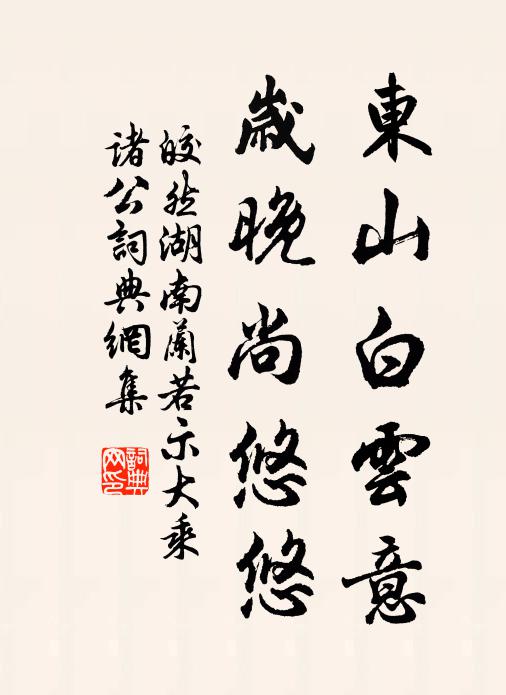 東山白雲意
歲晚尚悠悠
皎然湖南蘭若示大乘
諸公詞典網集
詞典
网印